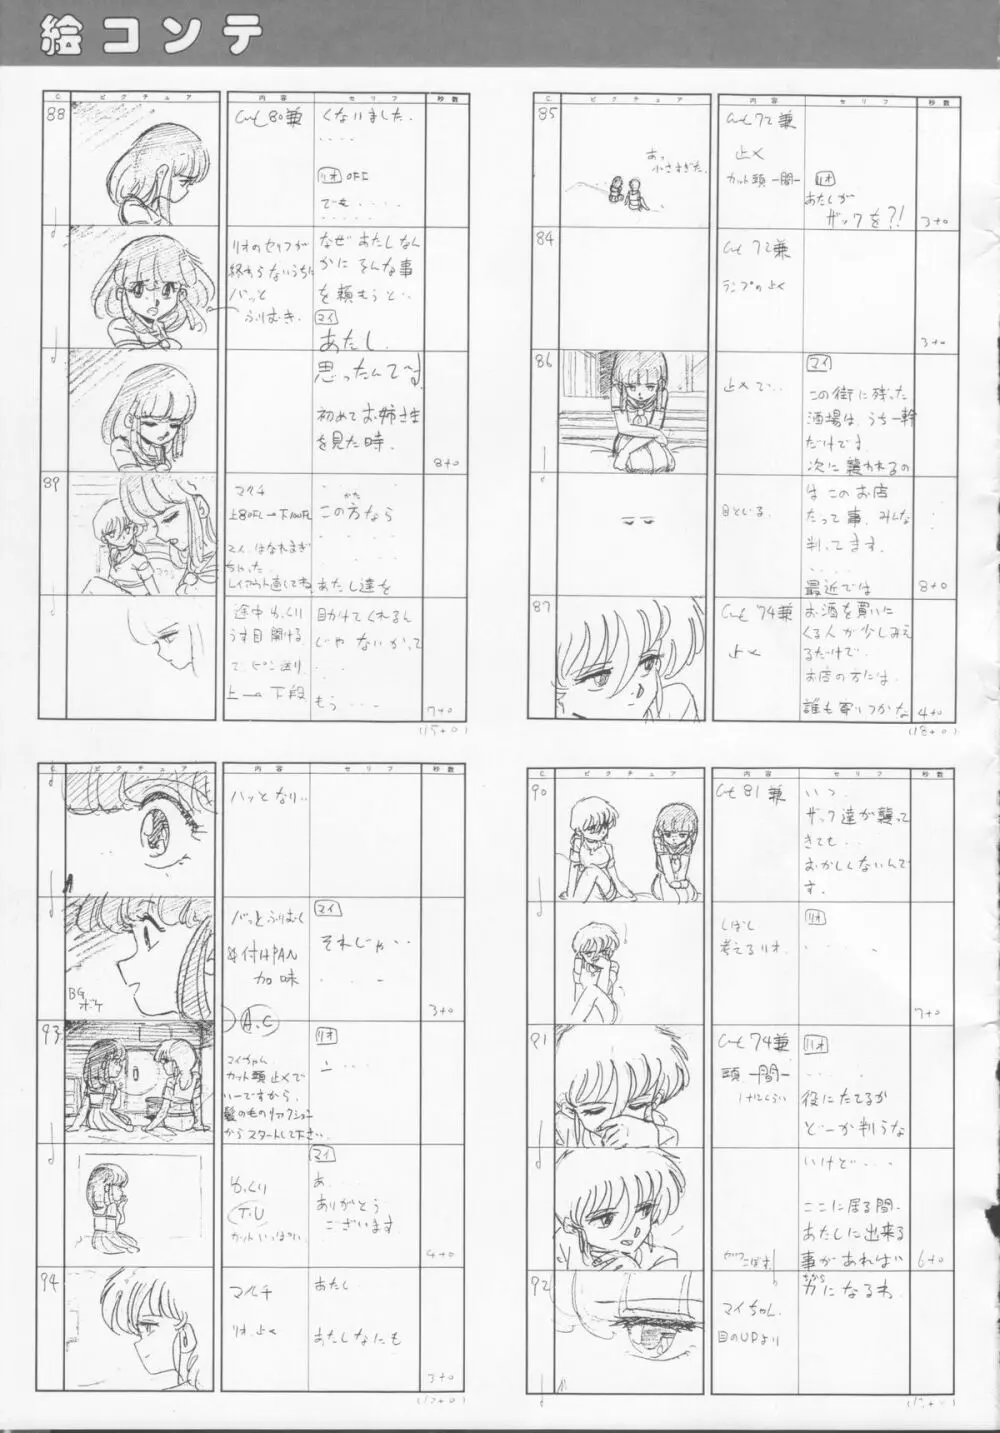 絵コンテ
C
ピクチュア
内容
セリフ
秒数
85
あっ
小さすぎた。
Cut 72兼
止メ
カット頭 一間一
リオ
あたしが
ザックを?!
3+0
84
Cut 72兼
ランプのよく
3+0
86
止メで‥
マイ
この街に残った
酒場は、うち一軒
だけです。
次に襲われるの
目とじる。
は このお店
だって事、みんな
判ってます。
‥‥
最近では
8+0
87
Cut 74兼
止メ
お酒を買いに
くる人が少しみえ
るだけで、
お店の方には、
誰も寄りつかな
4+0
(18+0)
C
ピクチュア
内容
セリフ
秒数
88
Cut 80兼
くなりました。
‥‥
リオ OFF
でも‥‥
‥‥‥
リオのセリフが
終わらないうちに
バッと
ふりむき、
なぜ あたしなん
かに そんな事
を頼もうと‥
マイ
あたし、
思ったんです
初めてお姉さま
を見た時、
8+0
89
マルチ
上80FL→下100FL
マイ、はなれすぎ
ちゃった。
レイアウト直してね。
この方なら
かた
‥‥
あたし達を
途中ゆっくり
うす目開ける
で ピン送り
上→下段
助けてくれるん
じゃないかって
‥
もう‥‥
7+0
(15+0)
C
ピクチュア
内容
セリフ
秒数
90
Cut 81兼
いつ、
ザック達が襲って
きても‥
おかしくないんで
す。
しばし
考えるリオ。
リオ
‥‥
7+0
91
Cut 74兼
頭 一間一
リオ
‥‥
役にたてるか
どーか判らな
いけど‥‥
ここに居る間、
あたしに出来る
事があればい
6+0
92
マイちゃん、
目のUPより
力になるわ。
ちから
C
ピクチュア
内容
セリフ
秒数
ハッとなり‥
BG
ボケ
バッとふりむく
付けPAN
加味
マイ
それじゃ‥
‥‥
3+0
A.C
93
マイちゃん
カット頭 止メで
いーですから、
髪の毛のリアクション
からスタートして下さい。
リオ
ゆっくり
T.U
カットいっぱい
マイ
あ‥
ありがとう
ございます
4+0
94
マルチ
リオ、止メ
あたし
あたしなにも
3+0
(12+0)